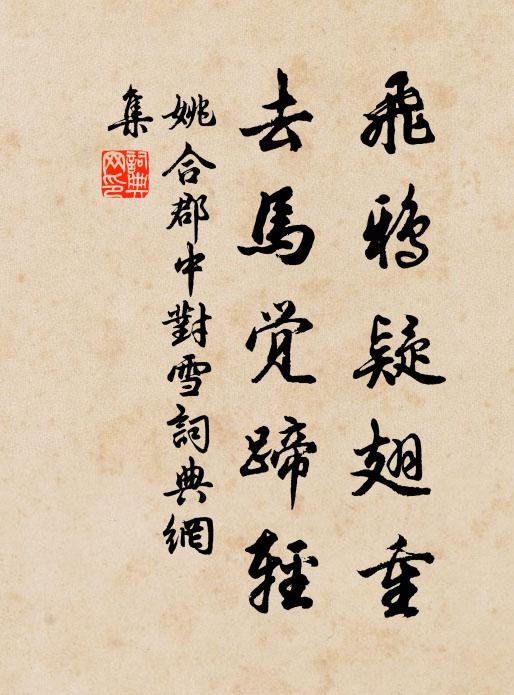 飛鴉疑翅重
去馬覚蹄輕
姚合郡中對雪詞典網
集
詞典
网印